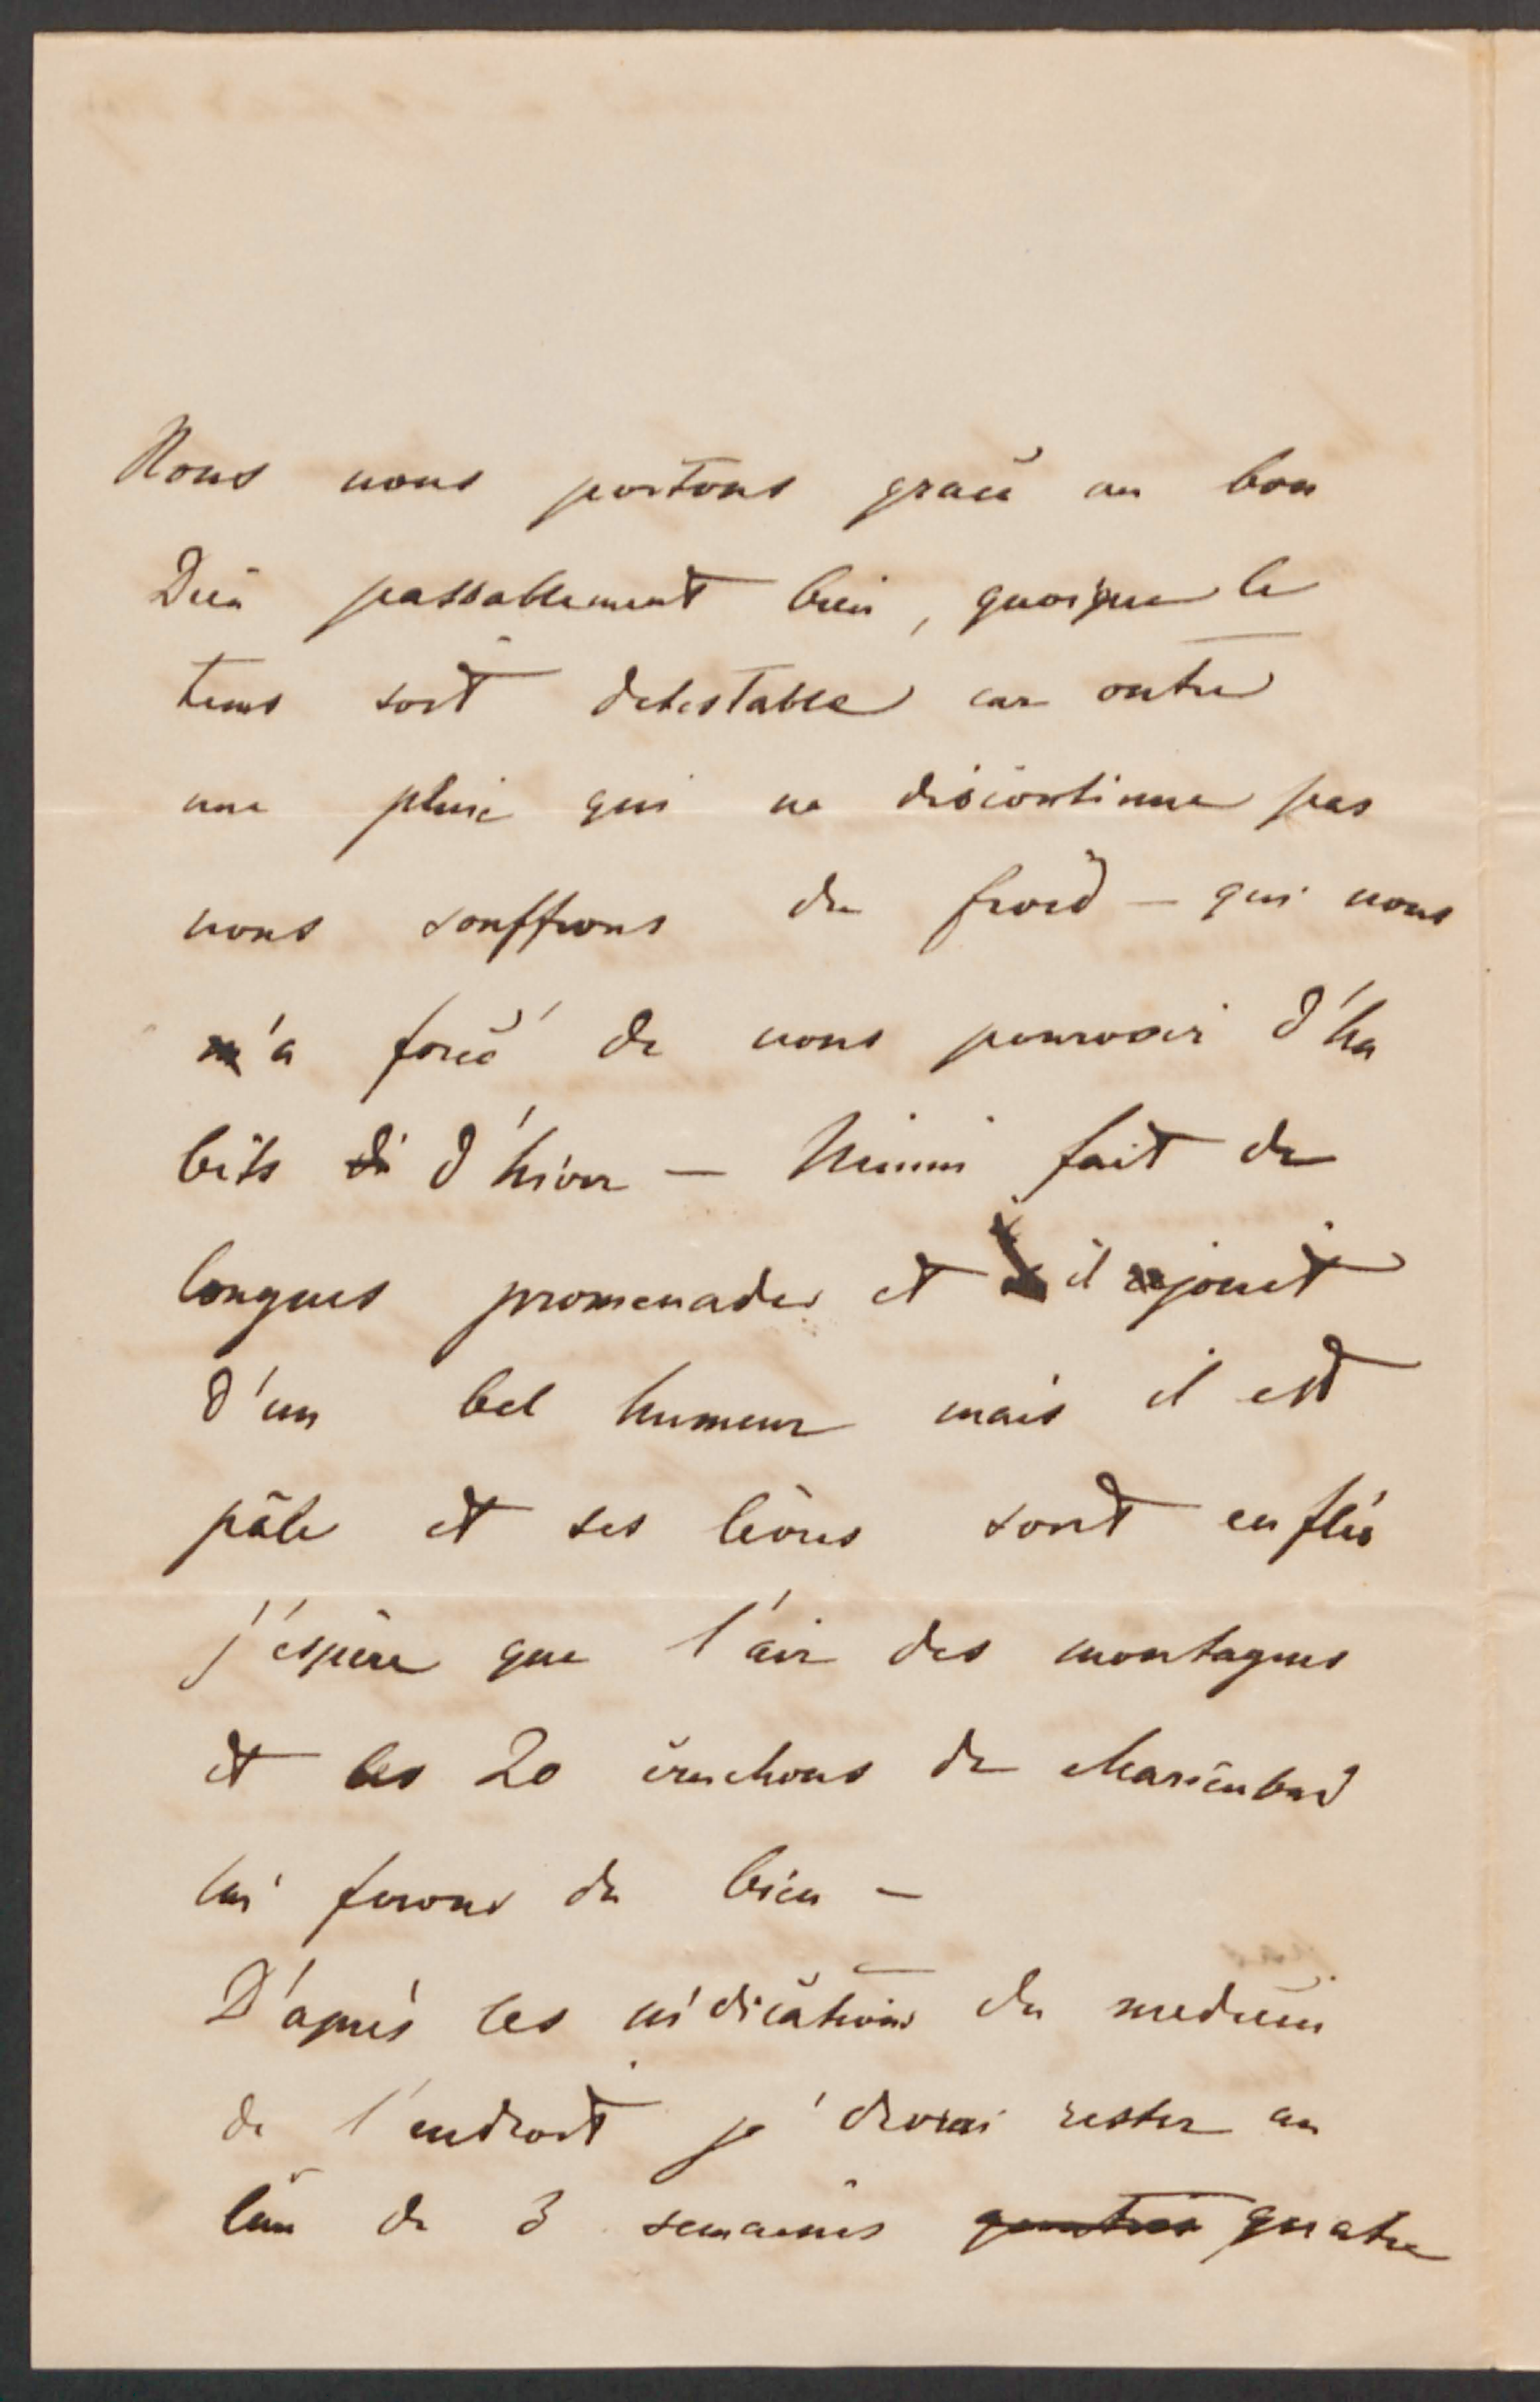 Nous nous portons grace au bon
Dieu passablement bien, quoique le
tems soit detestable car outre
une pluie qui ne discontinue pas
nous souffrons du froid — qui nous
m'a forcé de nous pourvoir d'ha
bits d'hiver — Mimi fait de
longues promenades et il jouit
d'un bel humeur mais il est
pâle et ses lèvres sont enflés
j'espère que l'air des montagnes
et les 20 cruchons de Marienbad
lui ferons du bien —
D'après les indications du medecin
de l'endroit je devrai rester au
lieu de 3 semaines quatre